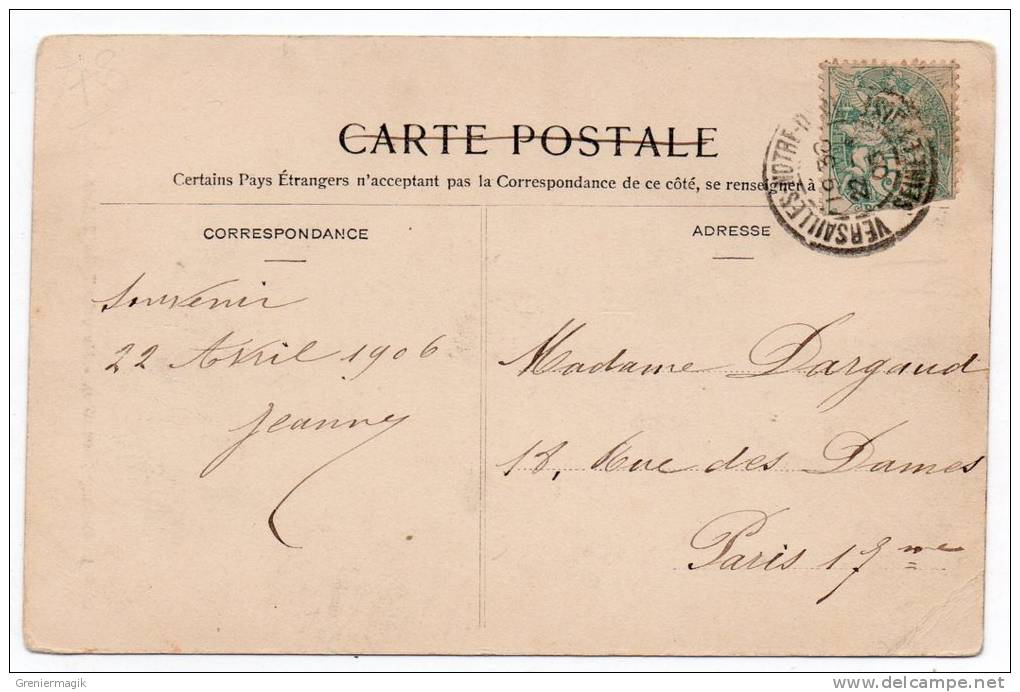 CARTE POSTALE
Certains Pays Étrangers n'acceptant pas la Correspondance de ce côté, se renseigner à
CORRESPONDANCE
ADRESSE
VERSAILLES NOTRE-D
22
Souvenir
22 Avril 1906
Jeanny
Madame Dargaud
18, Rue des Dames
Paris 17me
Greniermagik
www.delcampe.net